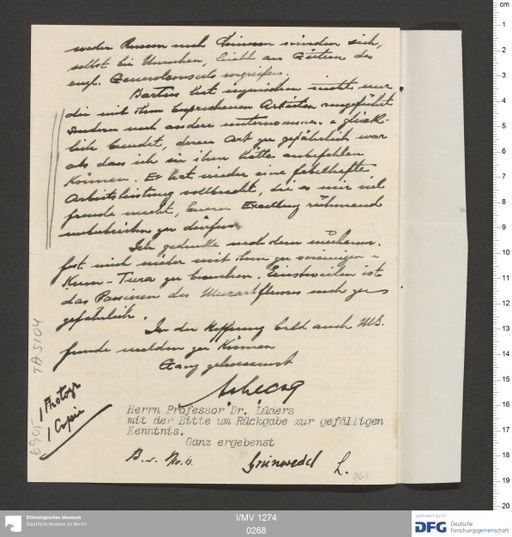 weder Russen noch Chinesen würden sich,
selbst bei Unruhen, leicht an Gästen des
engl. Generalconsuls vergreifen.
Bartus hat inzwischen nicht nur
die mit ihm besprochenen Arbeiten ausgeführt
sondern noch andere unternommen u. glück-
lich beendet, deren Art zu gefährlich war
als dass ich sie ihm hätte anbefehlen
können. Er hat wieder eine fabelhafte
Arbeitsleistung vollbracht, die es mir viel
Freude macht, Euerer Exzellenz rühmend
unterbreiten zu dürfen.
Ich gedenke nach dem
fest mich wieder mit ihm zu vereinigen u.
Kum-Tura zu besuchen. Einstweilen ist
das Passieren des Muzartflusses noch zu
gefährlich.
In der Hoffnung bald auch M.S.
funde melden zu können
Ganz gehorsamst
A. v. Lecoq
TA 5104
1 Photogr
1 Copie
Herrn Professor Dr. Lüders
mit der Bitte um Rückgabe zur gefälligen
Kenntnis.
Ganz ergebenst
Grünwedel
L.
261
Ethnologisches Museum
Staatliche Museen zu Berlin
I/MV 1274
0268
DFG Deutsche
Forschungsgemeinschaft
cm
1
2
3
4
5
6
7
8
9
10
11
12
13
14
15
16
17
18
19
20